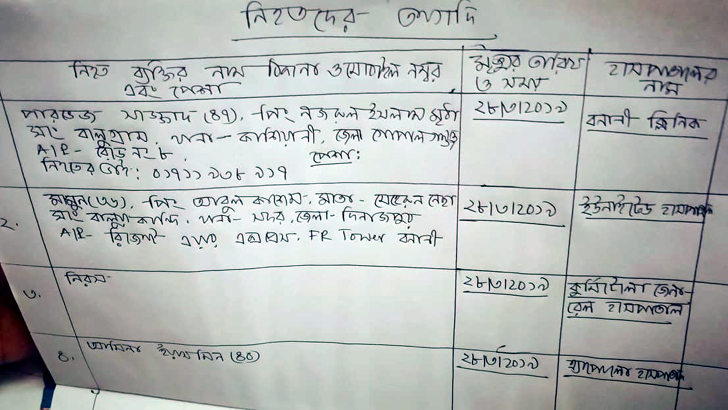 নিহতদের তথ্যাদি
নিহত ব্যক্তির নাম ঠিকানা ও মোবাইল নম্বর
এবং পেশা
মৃত্যুর তারিখ
ও সময়
হাসপাতালের
নাম
পারভেজ সাজ্জাদ (৪৭), পিং নজরুল ইসলাম মৃধা
সাং বালুগ্রাম, থানা- কাশিয়ানী, জেলা গোপালগঞ্জ
A/P- রোড নং ৮,
পেশা:
নিহতের মোবা: ০১৭১১ ৯৩৮ ৯১৭
২৮/৩/২০১৯
বনানী ক্লিনিক
২. মামুন(৩৬), পিং আবুল কাশেম, মাতা-
সাং বালুয়াকান্দি, থানা- সদর, জেলা- দিনাজপুর
A/P- FR Tower বনানী
২৮/৩/২০১৯
ইউনাইটেড হাসপাতাল
৩. নিরস
২৮/৩/২০১৯
কুর্মিটোলা জেনা-
রেল হাসপাতাল
৪. আমিনা ইয়াসমিন (৪০)
২৮/৩/২০১৯
এ্যাপোলো হাসপাতাল